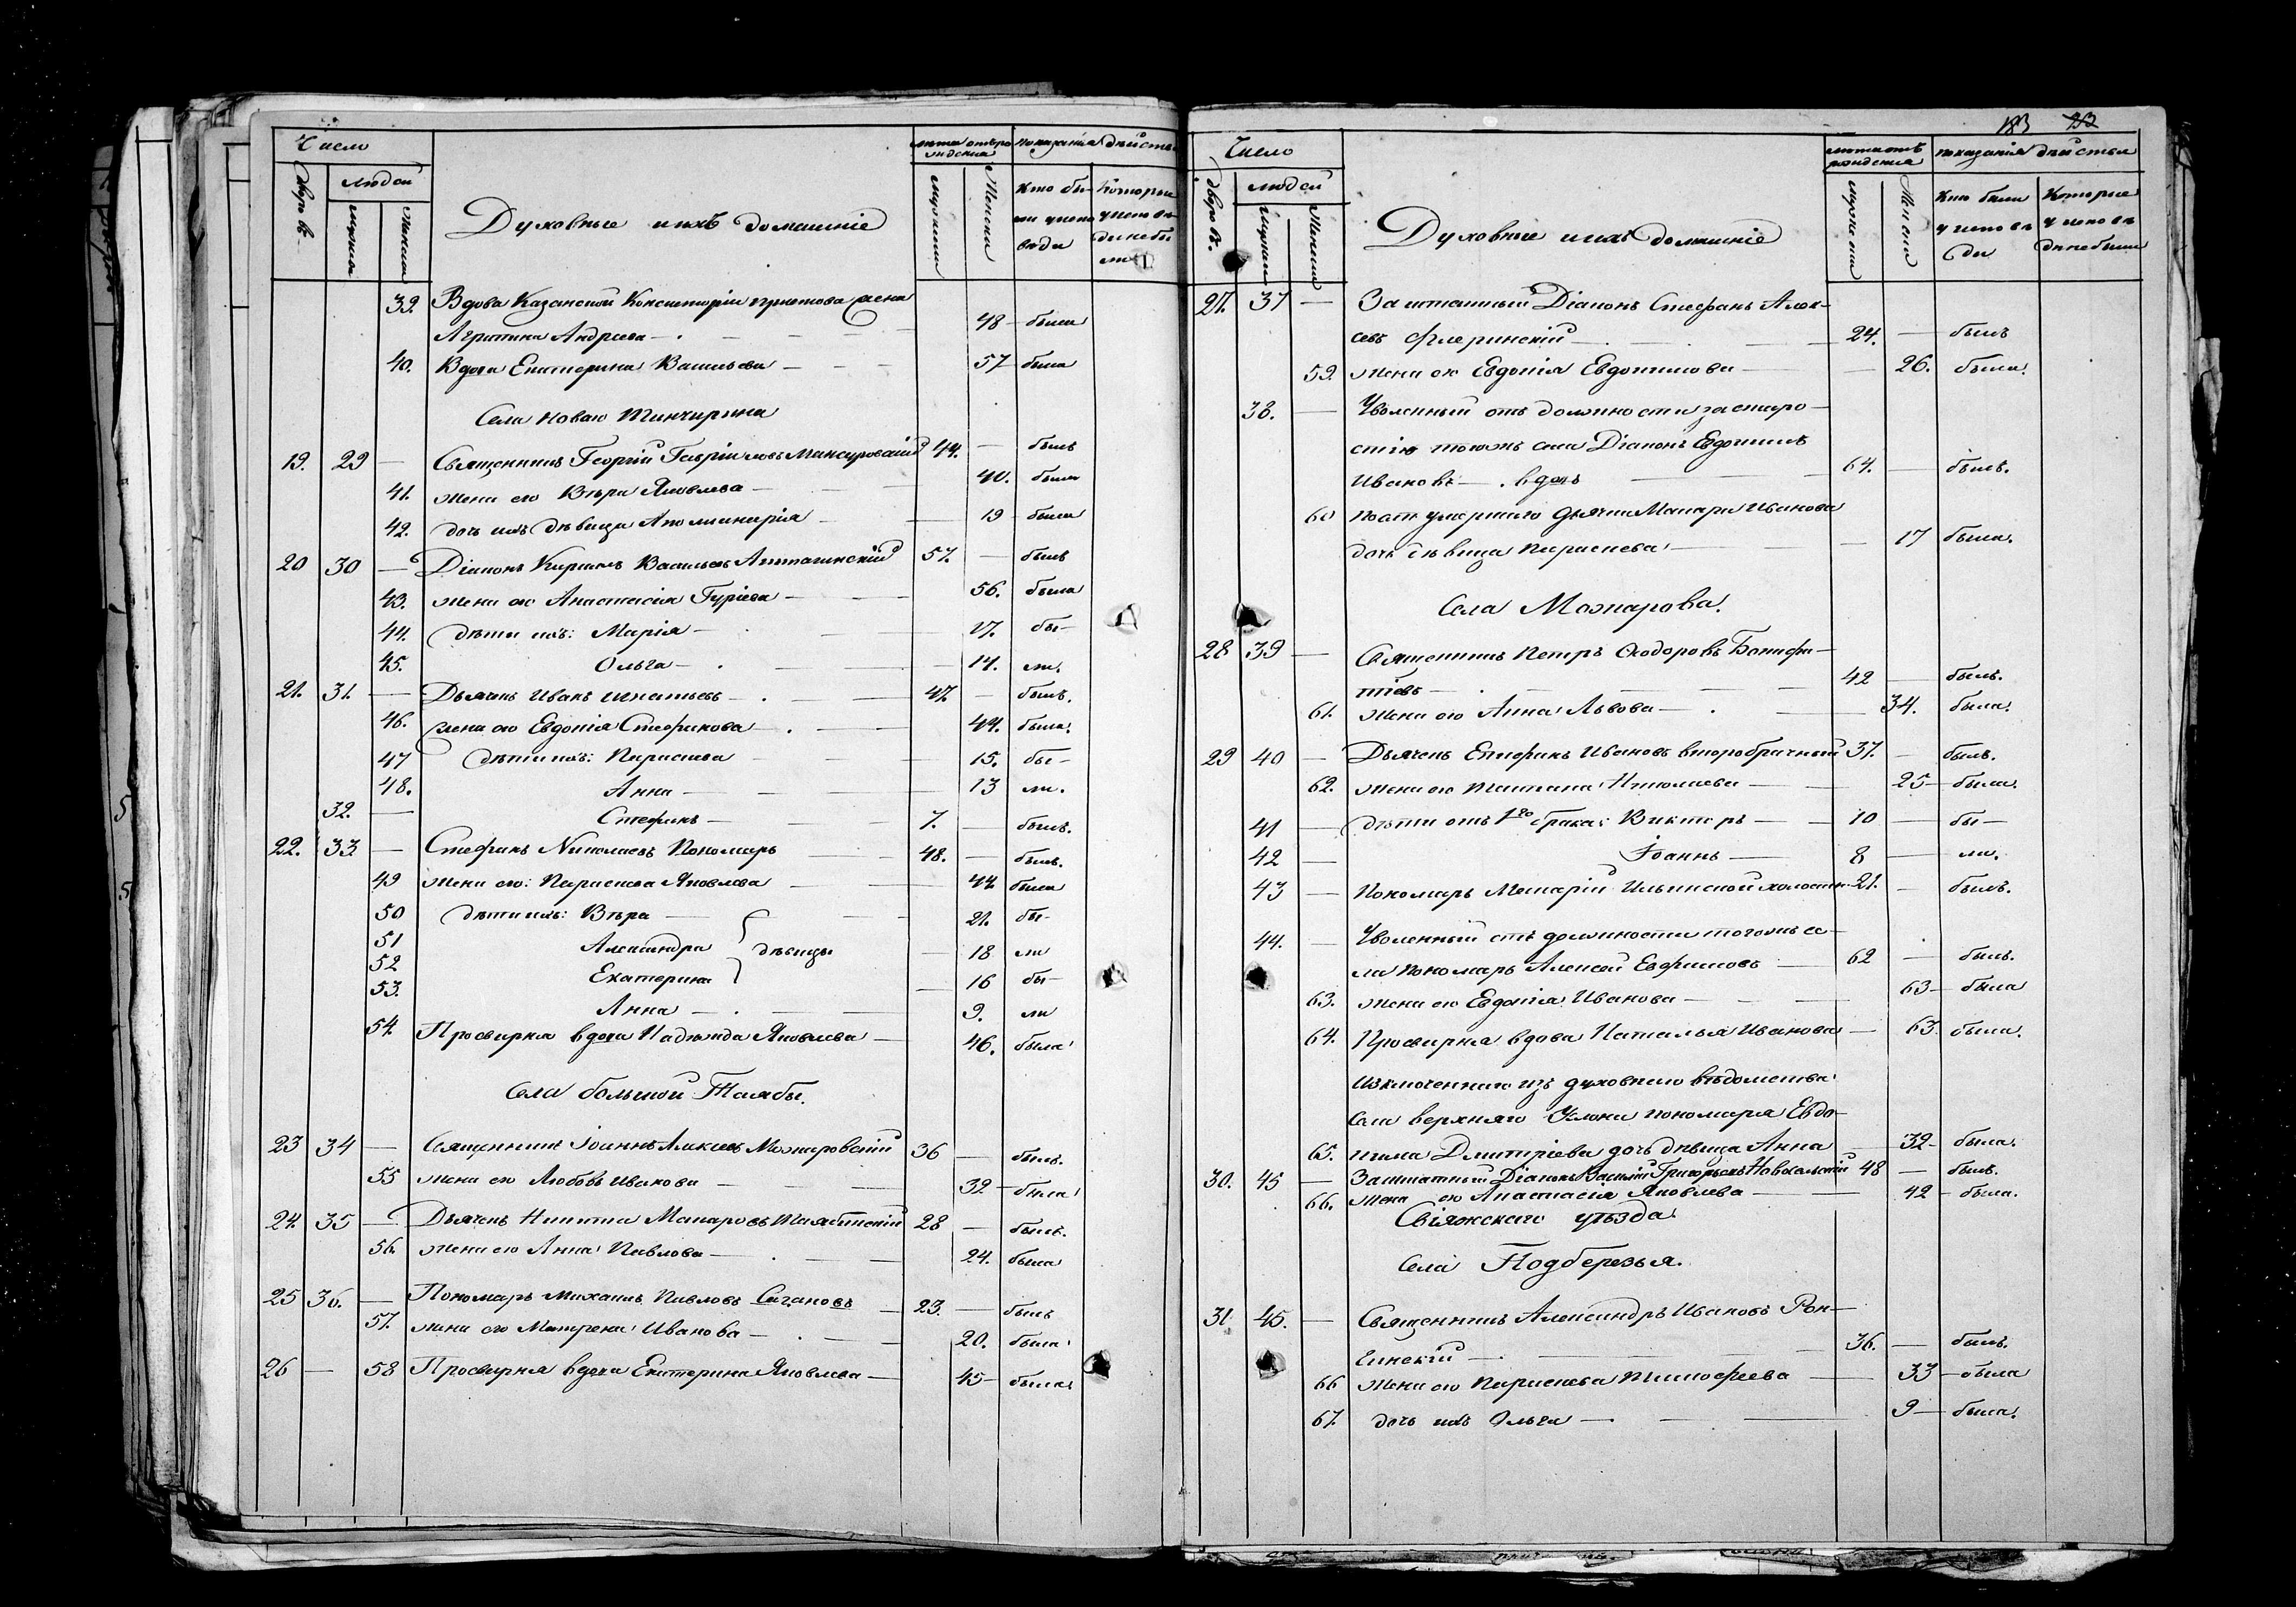 Число
дворовъ
людей
мужска
женска
Духовные и ихъ домашніе
лѣта отъ рожденія
мужскии
женска
показанія дѣйства
кто были у исповѣди
которые у исповѣди не были
39. Вдова Казанской Консисторіи
Агрипина Андреева — 48 — была
40. Вдова Екатерина Васильева — 57 — была
Села Новаго Тинчирина
19. 29 — Священникъ Георгій Гавріиловъ Мансуровскій 44. — былъ
41. жена его Вѣра Яковлева — 40. была
42. дочь ихъ дѣвица Аполинарія — 19 — была
20 30 — Діаконъ Кириллъ Васильевъ 57. — былъ
43. жена его Анастасія Гуріева — 56. была
44. дѣти ихъ: Марія — 17. бы-
45. Ольга — 14. ли.
21. 31. — Дьячекъ Иванъ Игнатьевъ — 47. — былъ.
46. жена его Евдокія Стефанова — 44. была.
47 дѣти ихъ: Параскева — 15. бы-
48. Анна — 13 ли.
32. — Стефанъ — 7. — былъ.
22. 33 — Стефанъ Николаевъ Пономарь 48. — былъ.
49 жена его: Параскева Яковлева — 44 была
50 дѣти ихъ: Вѣра — 21. бы-
51 Александра дѣвицы — 18 ли
52 Екатерина — 16 бы-
53. Анна — 9. ли
54. Просвирня вдова Надежда Яковлева — 46. была
Села большой Таябы.
23 34 — Священникъ Іоаннъ Алексѣевъ Можаровскій 36 — былъ.
55 жена его Любовь Иванова — 32 — была
24. 35 — Дьячекъ Никита Макаровъ Таябинскій 28 — былъ.
56. жена его Анна Павлова — 24. была
25 36. — Пономарь Михаилъ Павловъ Сагановъ — 23. — былъ
57. жена его Матрена Иванова — 20. была
26 — 58 Просвирня вдова Екатерина Яковлева — 45 — была
183 232
Число
дворовъ
людей
мужски
женска
Духовные и ихъ домашніе
лѣта отъ рожденія
мужскии
женска
показанія дѣйства
кто были у исповѣди
которые у исповѣди не были
27. 37 — Заштатный Діаконъ Стефанъ Алек-
сѣевъ Флеринскій — 24. — былъ
59. жена его Евдокія Евдокимова — 26. была.
38. — Уволенный отъ должности за старо-
стію тогожъ села Діаконъ Евдокимъ
Ивановъ — вдовъ — 64. — былъ.
60 послѣ умершаго дьячка Макара Иванова
дочь дѣвица Параскева — 17 была.
Села Можарова.
28 39 — Священникъ Петръ Ѳеодоровъ Бонифа-
тіевъ — 42 — былъ.
61. жена его Анна Львова — 34. была.
29 40 — Дьячекъ Стефанъ Ивановъ второбрачный 37. — былъ.
62. жена его Татіана Николаева — 25 — была.
41 — дѣти отъ 1го брака: Викторъ — 10 — бы-
42 — Іоаннъ — 8 — ли.
43 — Пономарь Макарій Ильинской холостъ — 21. — былъ.
44. — Уволенный отъ должности тогожъ се-
ла пономарь Алексей Евфимовъ — 62 — былъ.
63. жена его Евдокія Иванова — 63 — была
64. Просвирня вдова Наталья Иванова — 63. была.
Изключеннаго изъ духовнаго вѣдомства
села верхняго Услона пономаря Евдо-
65. кима Дмитріева дочь дѣвица Анна — 32 — была.
30. 45 — Заштатный Діаконъ Василій Григорьевъ Новосельскій 48 — былъ.
66. жена его Анастасія Яковлева — 42 — была.
Свіяжскаго уѣзда
Села Подберезья.
31 45. — Священникъ Александръ Ивановъ Рон-
гинскій — 36. — былъ.
66 жена его Параскева Тимофеева — 33 — была
67. дочь ихъ Ольга — 9 — была.